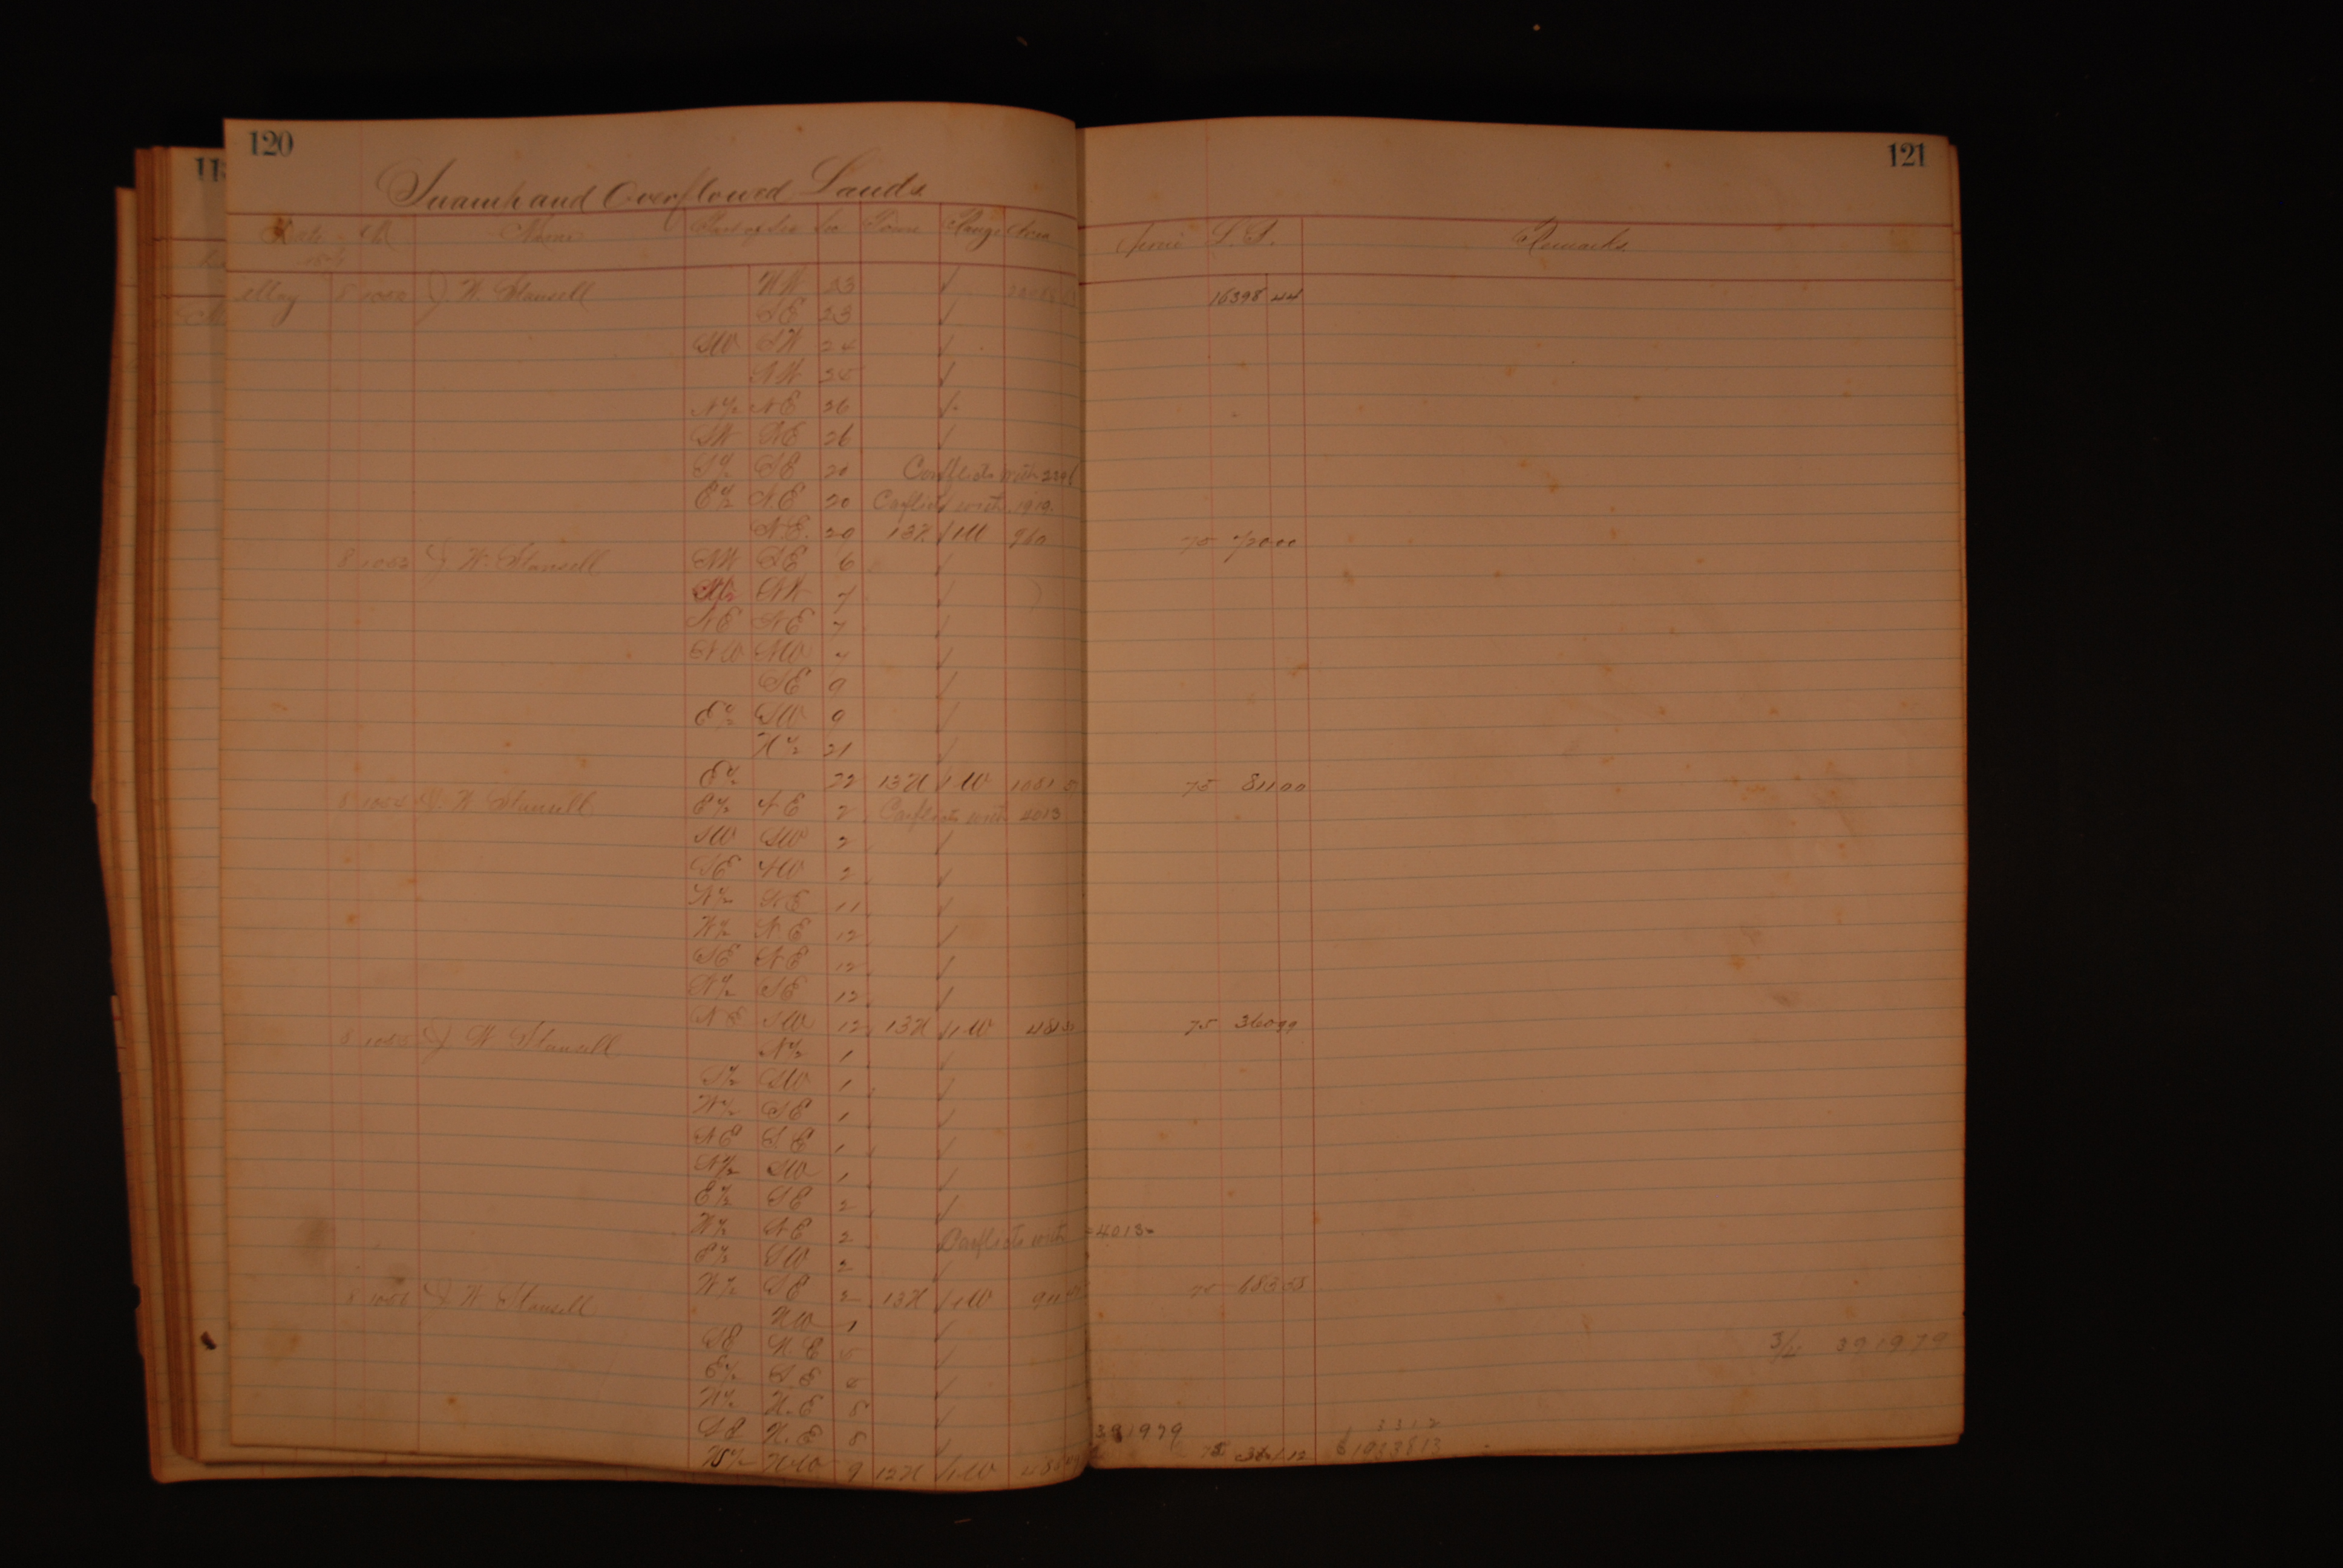 120
Swamp and Overflowed Lands
Date No Name Part of Sec Sec Town Range Area
May 8 J. W. Stansell NW 23 ✓
SE 23 ✓
SW SW 24 ✓
NW 35 ✓
N½ NE 26 ✓
SW NE 26 ✓
S½ SE 20 Conflicts with
E½ N.E 20 Conflicts with 1919
N.E. 20 13N 1W 960
8 1053 J. W. Stansell NW SE 6 ✓
NW 7 ✓
NE NE 7 ✓
NW NW 7 ✓
SE 9 ✓
E½ SW 9 ✓
N½ 21 ✓
E½ 22 13N 1W 1081
8 1054 J. W. Stansell E½ NE 2 Conflicts with 4013
SW SW 2 ✓
SE NW 2 ✓
N½ NE 11 ✓
W½ NE 12 ✓
SE NE 12 ✓
N½ SE 12 ✓
NE SW 12 13N 1W 481
8 1055 J. W. Stansell N½ 1 ✓
S½ SW 1 ✓
W½ SE 1 ✓
NE SE 1 ✓
N½ SW 1 ✓
E½ SE 2 ✓
W½ NE 2 Conflicts with 4013
E½ SW 2 ✓
W½ SE 2 13N 1W 911
8 1056 J. W. Stansell NW 1 ✓
SE NE 5 ✓
E½ SE ✓
N½ N.E 8 ✓
SE N.E 8 ✓
NW 9 12N 1W
121
S.S. Remarks
16398 44
75 72000
75 81100
75 36099
75 68358
3/4 391979
391979
3312
75 361 12 1933813